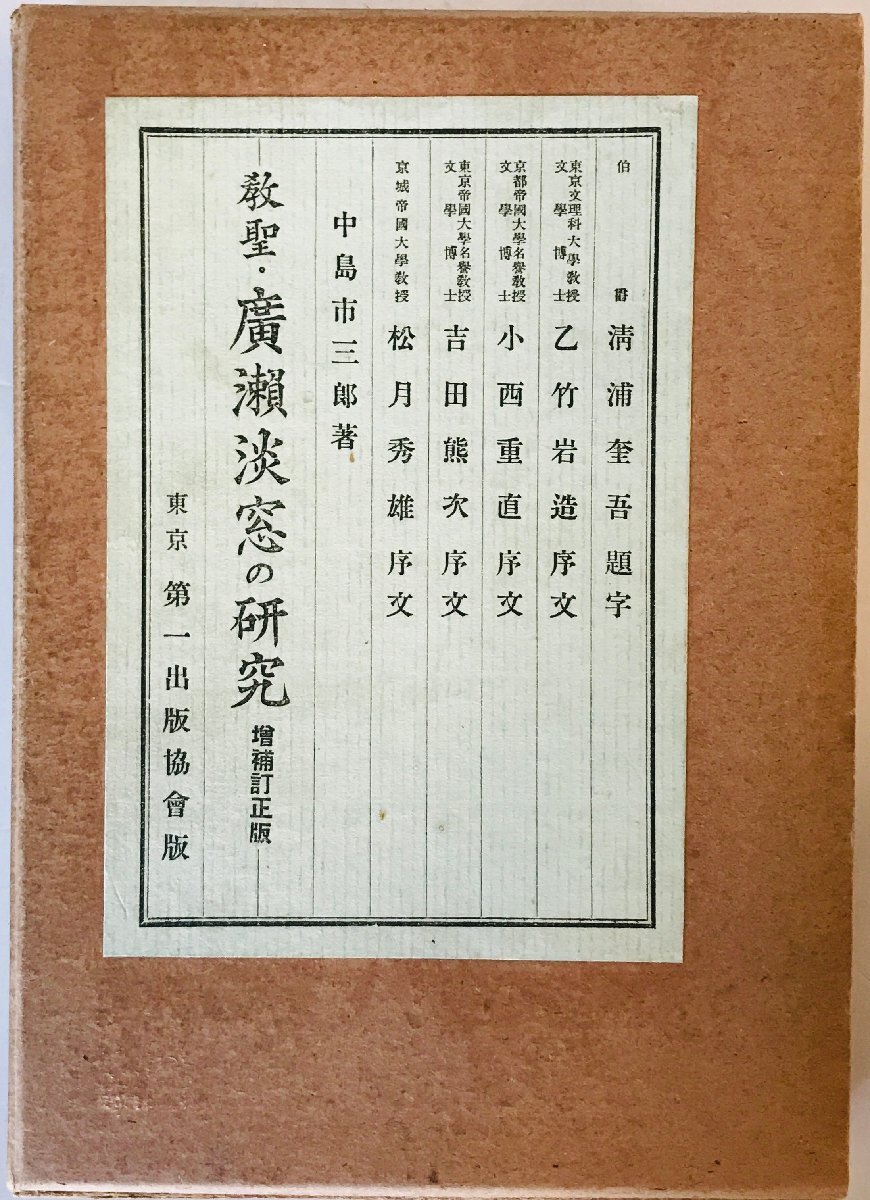 伯爵 淸浦奎吾題字
東京文理科大學敎授 文學博士 乙竹岩造序文
京都帝國大學名譽敎授 文學博士 小西重直序文
東京帝國大學名譽敎授 文學博士 吉田熊次序文
京城帝國大學敎授 松月秀雄序文
中島市三郎著
敎聖・廣瀨淡窓の硏究 增補訂正版
東京 第一出版協會版